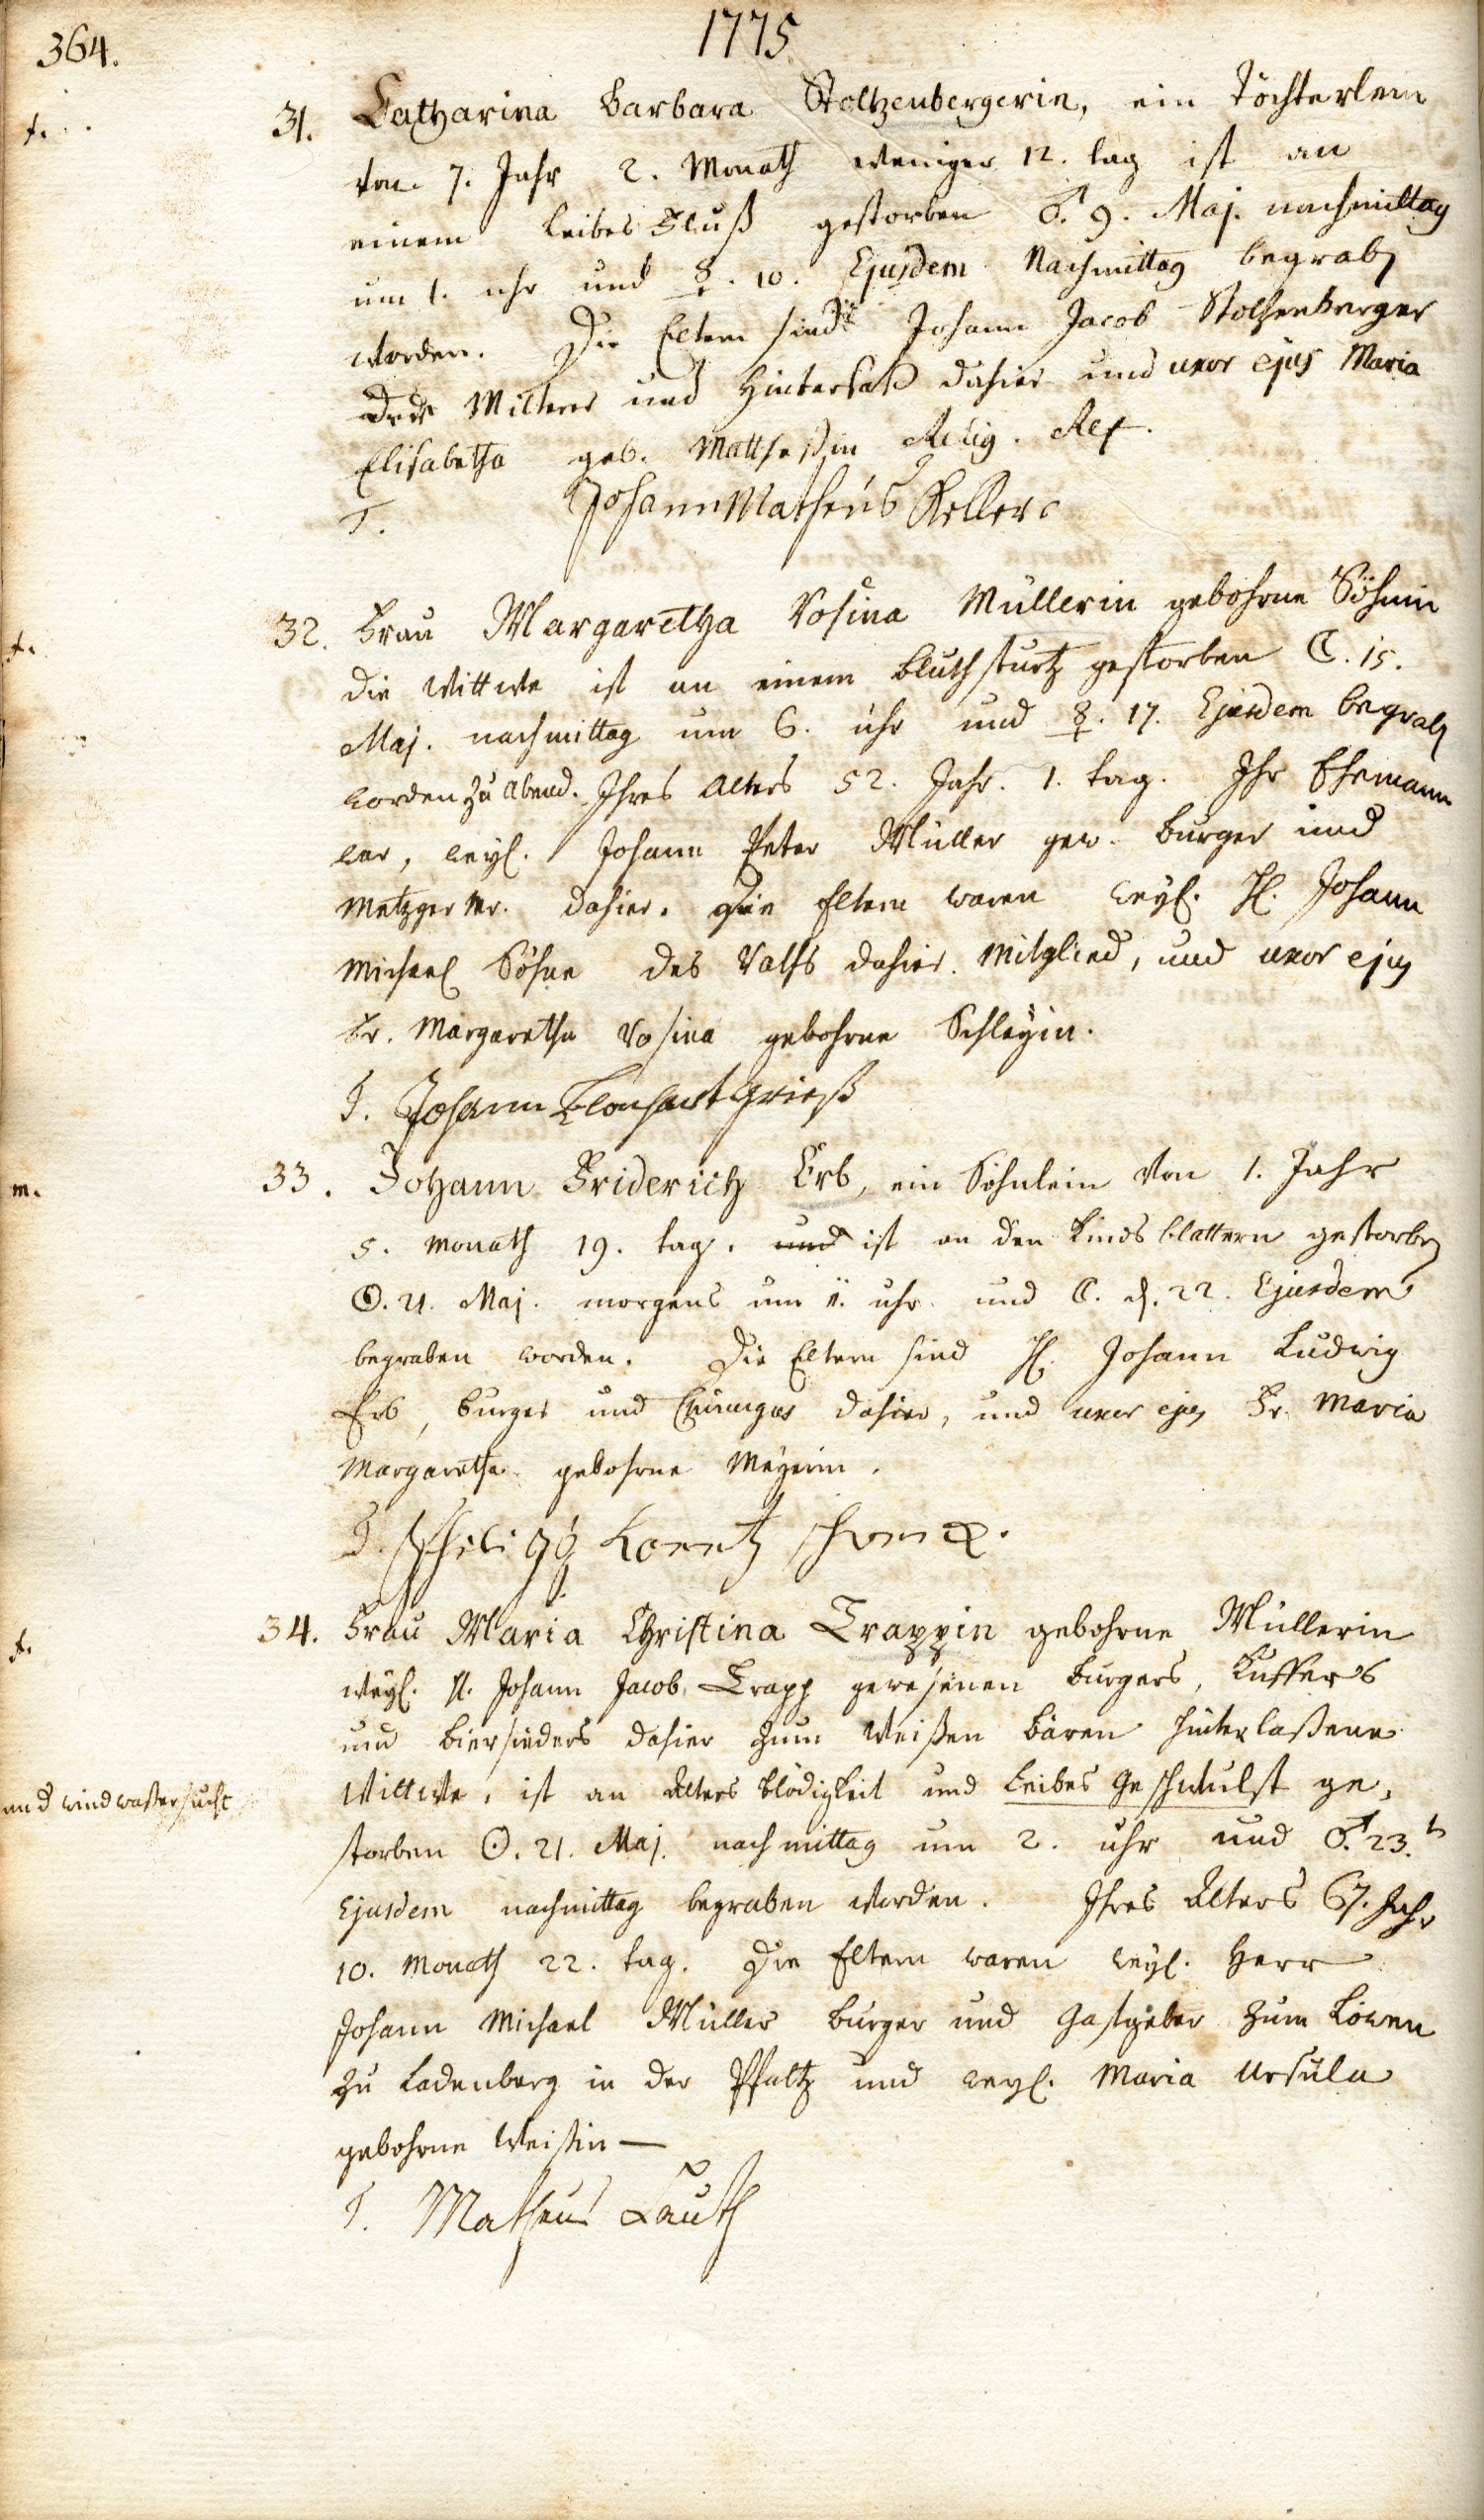 364.
1775
f.
31. Catharina Barbara Stoltzenbergerin, ein Töchterlein
von 7. Jahr 2. Monath weniger 12. tag ist an
einem Leibes Fluß gestorben ♂. 9. Maj. nachmittag
um 1. uhr und ☿. 10. Ejusdem Nachmittag begrab
worden. Die Eltern sind Johann Jacob Stoltzenberger
und Hintersaß dahier und uxor ejus Maria
Elisabetha geb. Relig. Ref.
T. Johann Matheus Keller
f.
32. Frau Margaretha Rosina Müllerin gebohrne Böhmin
die Wittwe ist an einem Bluthsturtz gestorben ☾. 15.
Maj. nachmittag um 6. uhr und ☿. 17. Ejusdem begrab
worden zu Abend. Ihres Alters 52. Jahr. 1. tag. Ihr Ehemann
war, weyl. Johann Peter Müller gew. burger und
Metzger Mr. dahier. Die Eltern waren weyl. H. Johann
Michael Böhm des Raths dahier Mitglied, und uxor ejus
Fr. Margaretha Rosina gebohrne Schleyin.
T. Johann Grieß
m.
33. Johann Friderich Erb, ein Söhnlein von 1. Jahr
5. Monath 19. tag. und ist an den Kindsblattern gestorben
☉. 21. Maj. morgens um uhr und ☾. d. 22. Ejusdem
begraben worden. Die Eltern sind H. Johann Ludwig
Erb, burger und Chirurgus dahier, und uxor ejus Fr. Maria
Margaretha gebohrne Meyerin.
T.
f.
34. Frau Maria Christina Trappin gebohrne Müllerin
weyl. H. Johann Jacob Trapp gewesenen burgers, Kuffers
und biersieders dahier zum Weißen bären hinterlaßene
Wittwe, ist an Alters blödigkeit und Leibes Geschwulst ge-
und windwaßersucht
storben ☉. 21. Maj. nachmittag um 2. uhr und ♂. 23.
Ejusdem nachmittag begraben worden. Ihres Alters 67. Jahr
10. Monath 22. tag. Die Eltern waren weyl. Herr
Johann Michael Müller burger und Gastgeber zum Löwen
zu Ladenberg in der Pfaltz und weyl. Maria Ursula
gebohrne Weissin —
T. Matheus Lauth